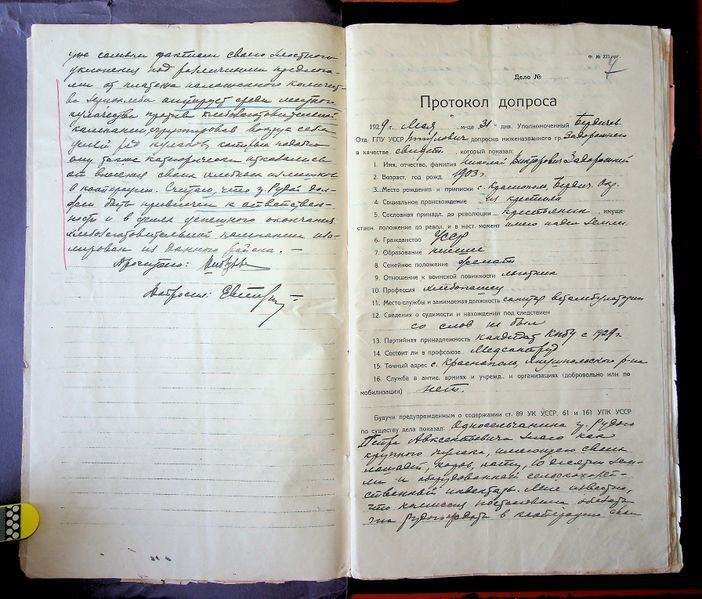 уже самым фактом своего злостного
уклонения под различными предлога-
ми от платежа наложенного количест-
ва агитирует среди местного
кулачества против хлебозаготовительной
кампании сгруппировав вокруг себя
целый ряд кулаков, которые подобно
ему также категорически отказались
от внесения своих хлебных излишков
в кооперацию. Считаю, что гр. Рудой дол-
жен быть привлечен к ответствен-
ности и в целях успешного окончания
хлебозаготовительной кампании изо-
лирован из данного района. —
Прочитано:
Допросил:
Ф. № 
Дело №
Протокол допроса
1929 г. Мая м-ца 31 дня. Уполномоченный Бердичев.
Отд. ГПУ УССР допросил ниженазванного гр. Задорожнего
в качестве свидет., который показал:
1. Имя, отчество, фамилия Николай Викторович Задорожний
2. Возраст, год рожд. 1903 г.
3. Место рождения и приписки с. Краснополь, Бердич. Окр.
4. Социальное происхождение из крестьян
5. Сословная принадл. до революции крестьянин, имуще-
ствен. положение до револ. и в наст. момент имело надел земли.
6. Гражданство УССР
7. Образование низшее
8. Семейное положение женат
9. Отношение к воинской повинности
10. Профессия хлебопашец
11. Место службы и занимаемая должность санитар ветамбулатории
12. Сведения о судимости и нахождении под следствием
со слов не был
13. Партийная принадлежность кандидат КП(б)У с 1929 г.
14. Состоит ли в профсоюзе Медсантруд
15. Точный адрес с. Краснополь, Янушпольского р-на
16. Служба в антис. армиях и учрежд. и организациях (добровольно или по
мобилизации) нет.
Будучи предупрежденным о содержании ст. 89 УК УССР. 61 и 161 УПК УССР
по существу дела показал: Односельчанина гр. Рудого
Петра Авксентьевича знаю как
крупного кулака, имеющего своих
лошадей, коров, хату, 10 десятин зем-
ли и оборудованный сельскохозяй-
ственный инвентарь. Мне известно,
что комиссия постановила
на Рудого в кооперацию